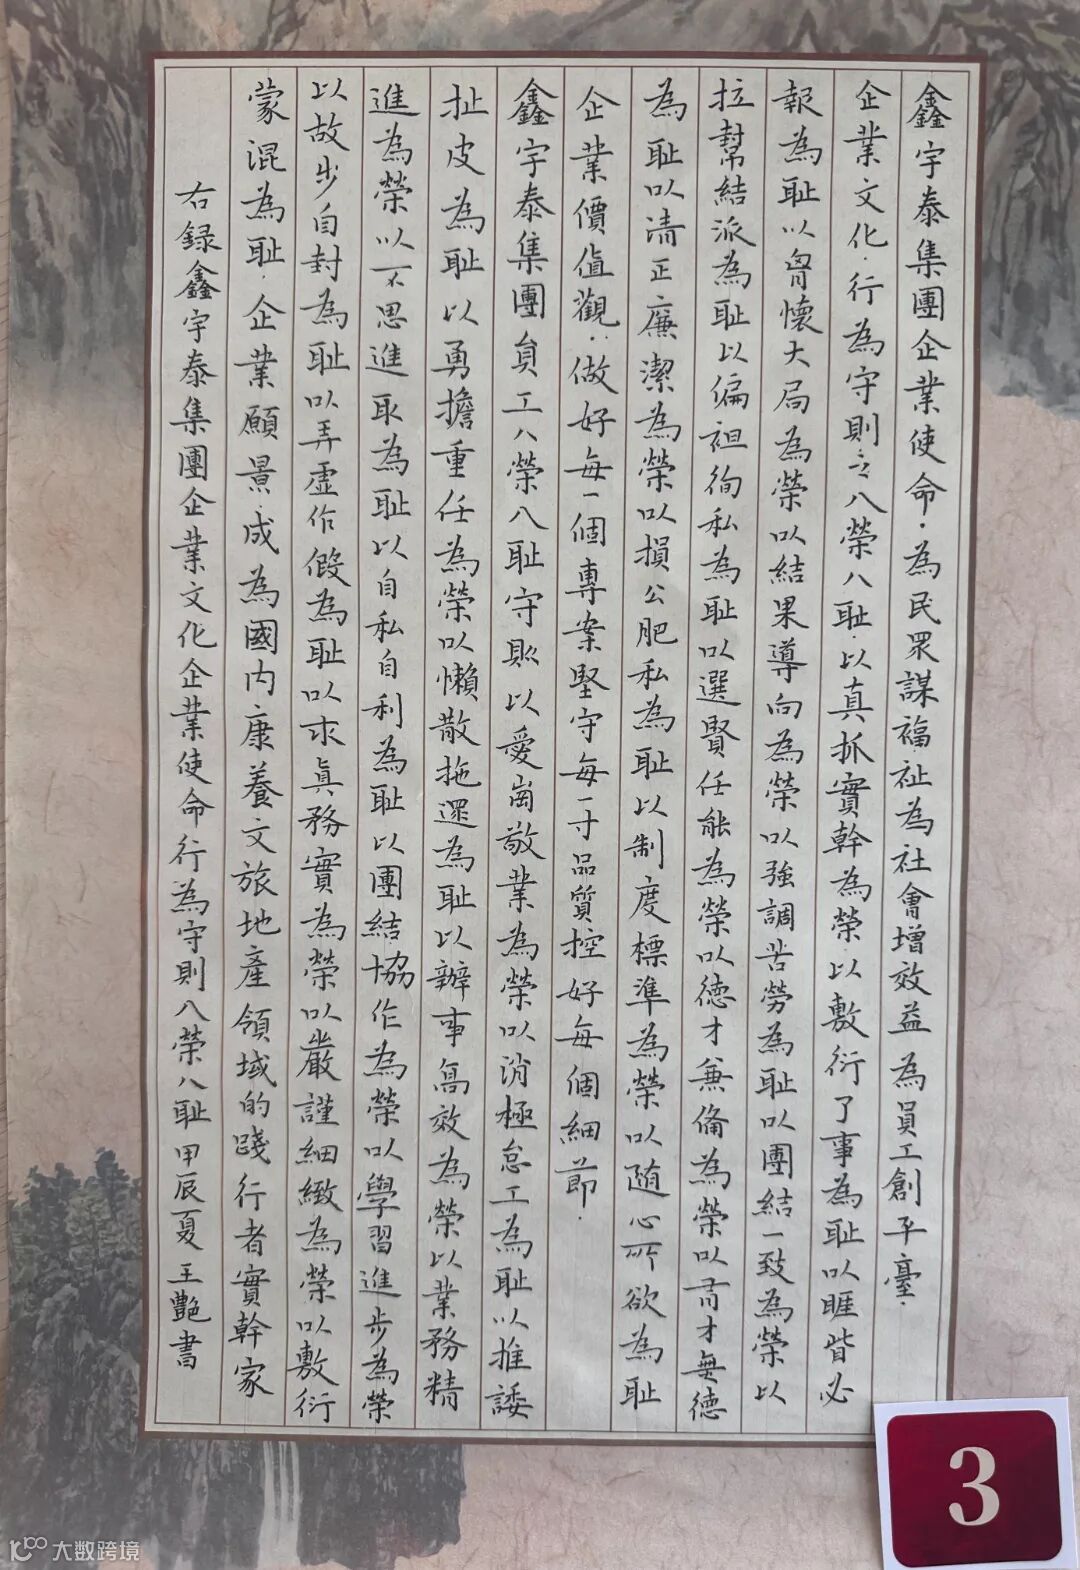 鑫宇泰集團企業使命·為民眾謀福祉為社會增效益為員工創平臺·
企業文化·行為守則之八榮八耻·以真抓實幹為榮·以敷衍了事為耻以睚眥必
報為耻以胷懷大局為榮以結果導向為榮以強調苦勞為耻以團結一致為榮以
拉幫結派為耻以偏袒徇私為耻以選賢任能為榮以德才兼備為榮以有才無德
為耻以清正廉潔為榮以損公肥私為耻以制度標準為榮以随心所欲為耻
企業價值觀：做好每一個專案堅守每一寸品質控好每個細節·
鑫宇泰集團員工八榮八耻守則以愛崗敬業為榮以消極怠工為耻以推諉
扯皮為耻以勇擔重任為榮以懶散拖遝為耻以辦事高效為榮以業務精
進為榮以不思進取為耻以自私自利為耻以團結協作為榮以學習進步為榮
以故步自封為耻以弄虛作假為耻以求真務實為榮以嚴謹細緻為榮以敷衍
蒙混為耻·企業願景·成為國内康養文旅地產領域的踐行者實幹家
右録鑫宇泰集團企業文化企業使命行為守則八榮八耻甲辰夏王艷書
3
大数跨境